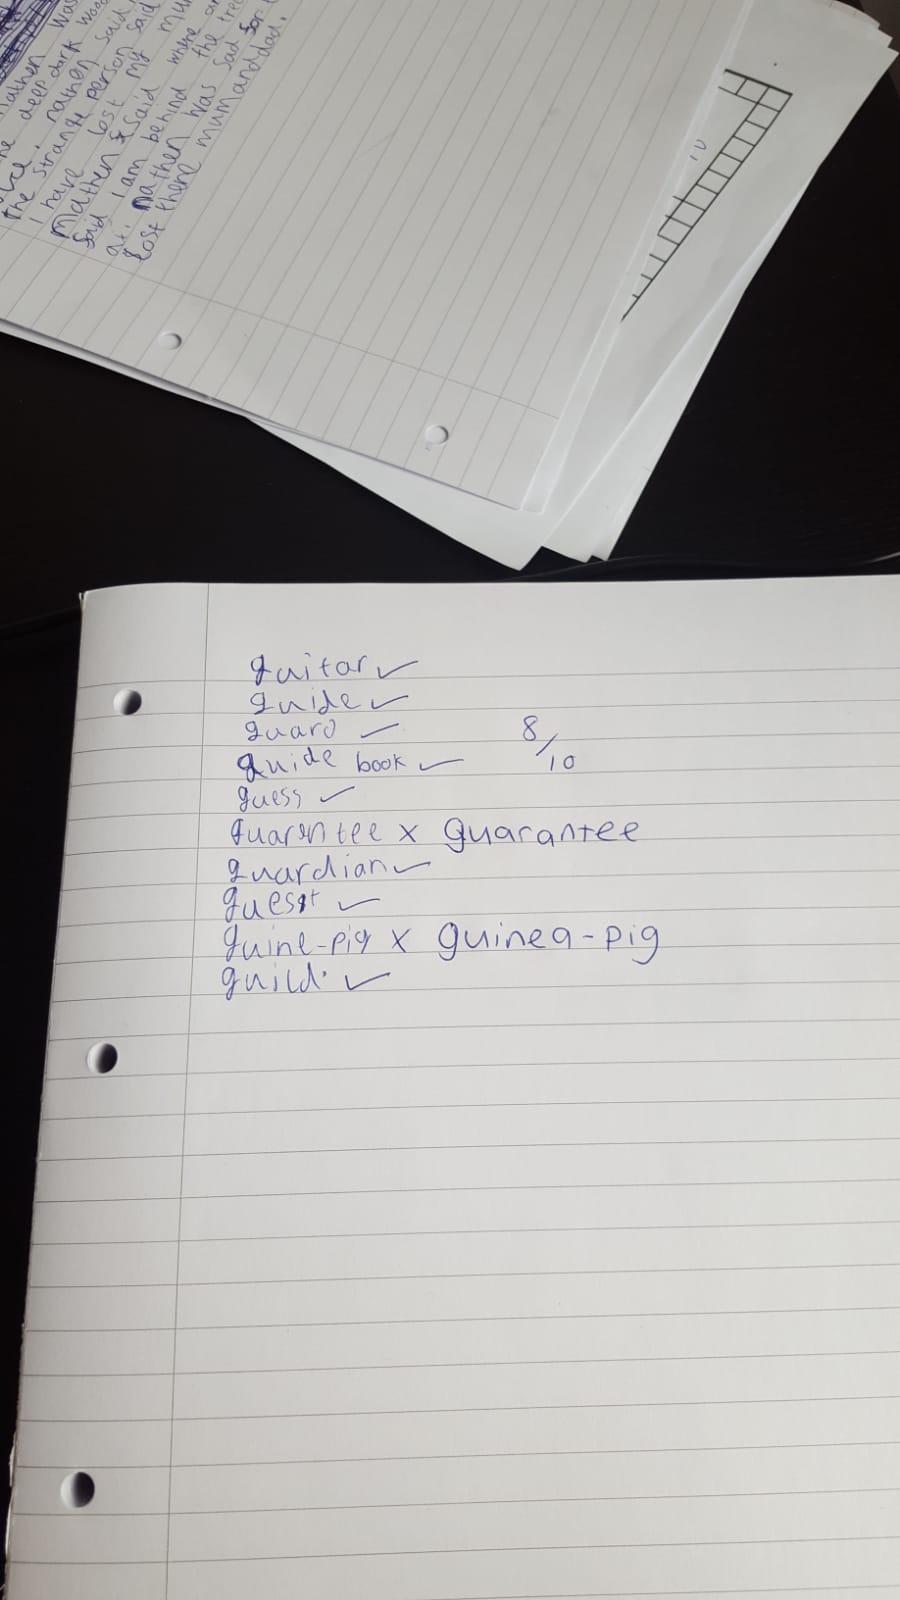 nathen was
deep dark wood
nathen said,
the strange person said
I have lost my mu
Mathen & said where a
said I am behind the tree
at. Nathen was sad for
lost there mumanddad.
10
guitar ✓
guide ✓
guard ✓
guide book ✓
8/10
guess ✓
guarentee x guarantee
guardian ✓
guesst ✓
guine-pig x guinea-pig
guild. ✓